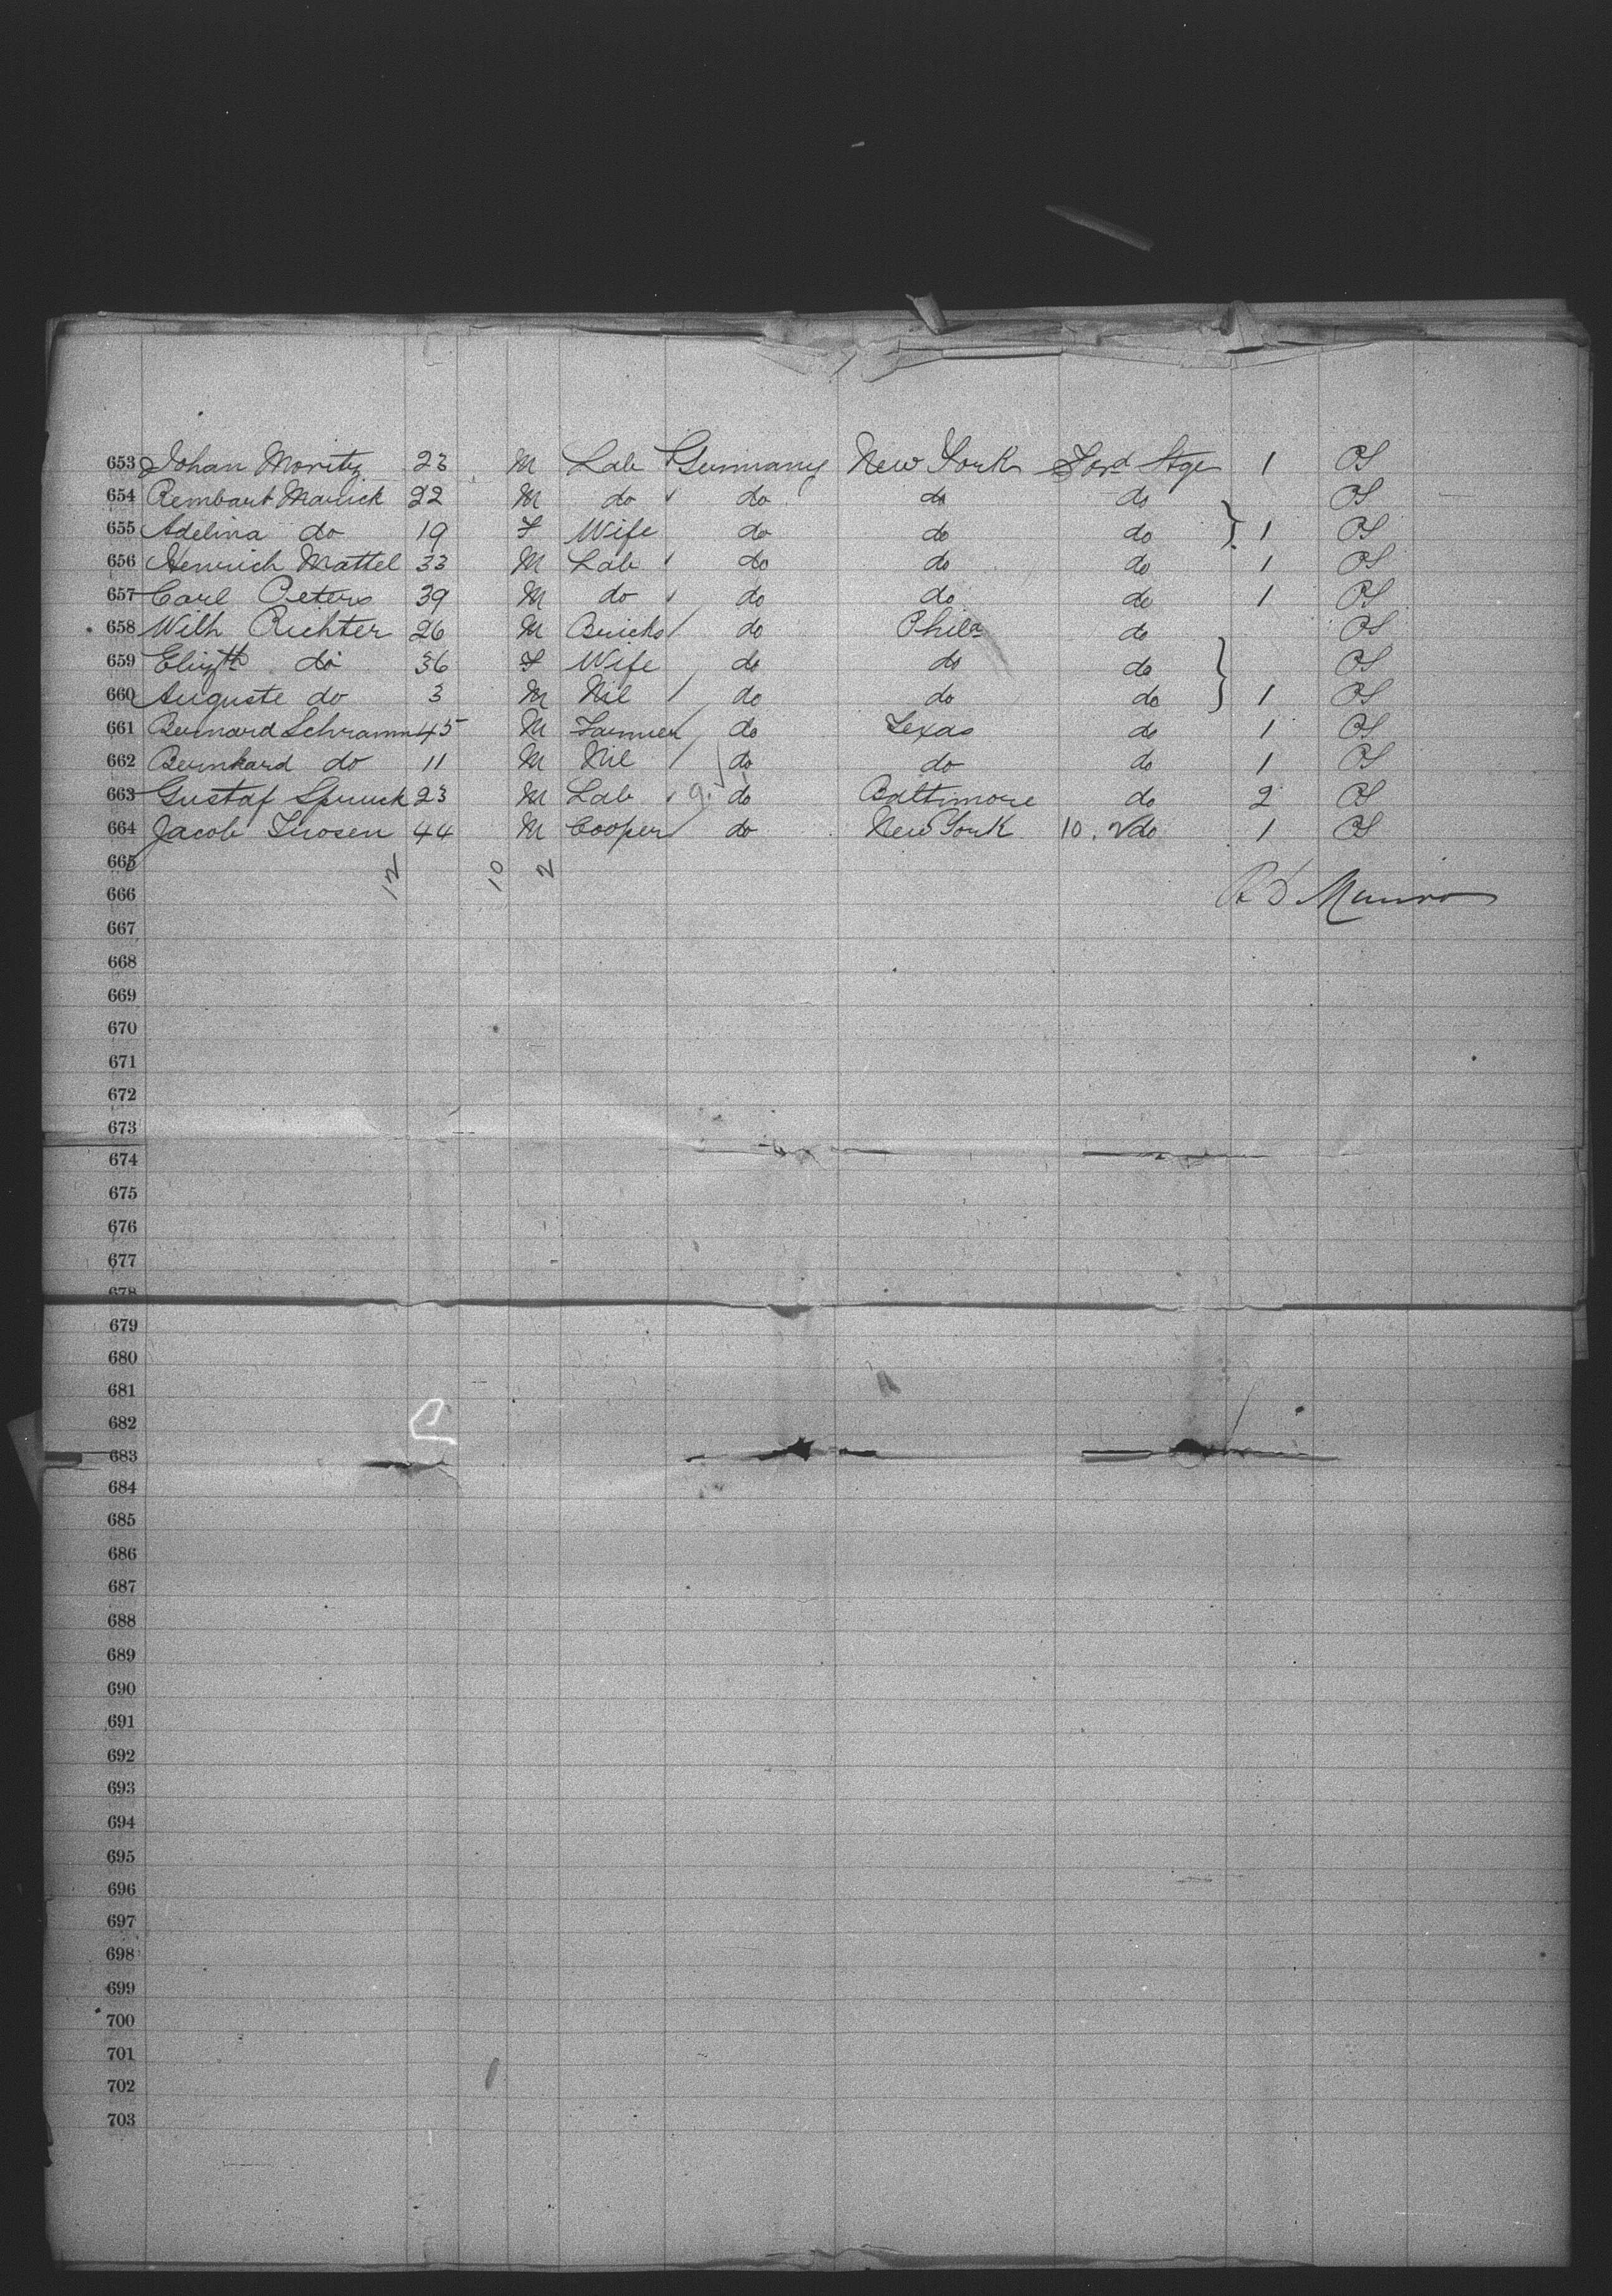 653 Johan Moritz 23 M Lab Germany New York Ford Stge 1 PS
654 Rembart Marlick 22 M do do do do PS
655 Adelina do 19 F Wife do do do } 1 PS
656 Heinrich Mattel 33 M Lab do do do 1 PS
657 Carl Peters 39 M do do do do 1 PS
658 Wilh Richter 26 M Bricks do Phila do PS
659 Elizth do 36 F Wife do do do PS
660 Auguste do 3 M Nil do do do } 1 PS
661 Bernard Schramm 45 M Farmer do Texas do 1 PS
662 Bernhard do 11 M Nil do do do 1 PS
663 Gustaf Spruck 23 M Lab 9. do Baltimore do 2 PS
664 Jacob Tirosen 44 M Cooper do New York 10. do 1 PS
665 12 10 2
666 R D Munro
667
668
669
670
671
672
673
674
675
676
677
678
679
680
681
682
683
684
685
686
687
688
689
690
691
692
693
694
695
696
697
698
699
700
701
702
703